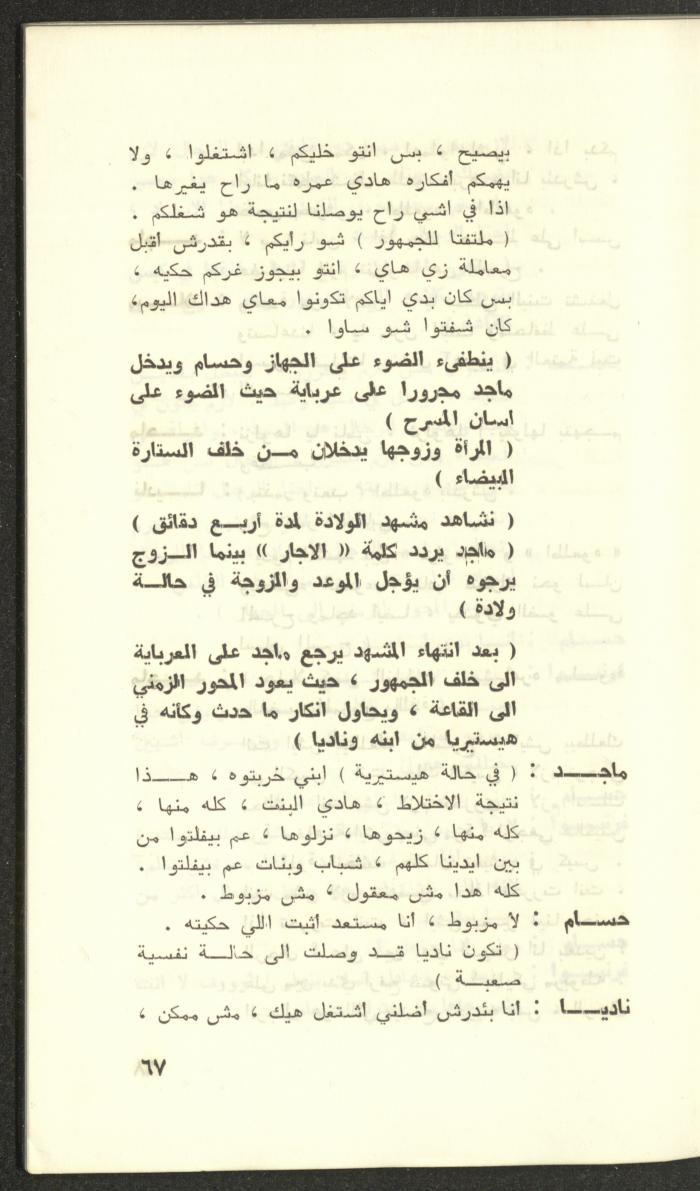 بيصيح ، بس انتو خليكم ، اشتغلوا ، ولا
يهمكم أفكاره هادي عمره ما راح يغيرها .
اذا في اشي راح يوصلنا لنتيجة هو شغلكم .
( ملتفتا للجمهور ) شو رأيكم ، بقدرش أقبل
معاملة زي هاي ، انتو بيجوز غركم حكيه ،
بس كان بدي اياكم تكونوا معاي هداك اليوم،
كان شفتوا شو ساوا .
( ينطفىء الضوء على الجهاز وحسام ويدخل
ماجد مجرورا على عرباية حيث الضوء على
اسان المسرح )
( المرأة وزوجها يدخلان مـن خلف الستارة
البيضاء )
( نشاهد مشهد الولادة لمدة أربـع دقائق )
( ماجد يردد كلمة « الاجار » بينما الـزوج
يرجوه أن يؤجل الموعد والزوجة في حالـة
ولادة )
( بعد انتهاء المشهد يرجع ماجد على العرباية
الى خلف الجمهور ، حيث يعود المحور الزمني
الى القاعة ، ويحاول انكار ما حدث وكأنه في
هيستيريا من ابنه وناديا )
ماجـــد : ( في حالة هيستيرية ) ابني خربتوه ، هـــذا
نتيجة الاختلاط ، هادي البنت ، كله منها ،
كله منها ، زيحوها ، نزلوها ، عم بيفلتوا من
بين ايدينا كلهم ، شباب وبنات عم بيفلتوا .
كله هدا مش معقول ، مش مزبوط .
حســام : لا مزبوط ، أنا مستعد أثبت اللي حكيته .
( تكون ناديا قـد وصلت الى حالـة نفسية
صعبـة )
ناديـــا : أنا بئدرش أضلني اشتغل هيك ، مش ممكن ،
٦٧